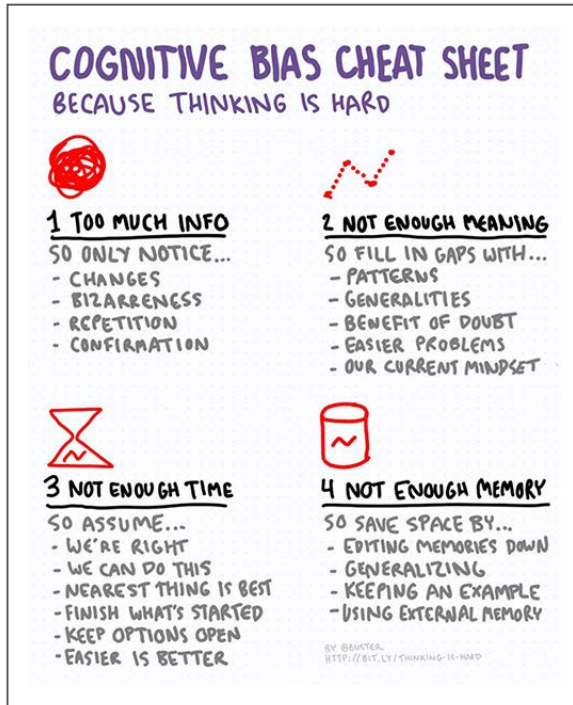 COGNITIVE BIAS CHEAT SHEET
BECAUSE THINKING IS HARD
1 TOO MUCH INFO
SO ONLY NOTICE...
- CHANGES
- BIZARRENESS
- REPETITION
- CONFIRMATION
2 NOT ENOUGH MEANING
SO FILL IN GAPS WITH...
- PATTERNS
- GENERALITIES
- BENEFIT OF DOUBT
- EASIER PROBLEMS
- OUR CURRENT MINDSET
3 NOT ENOUGH TIME
SO ASSUME...
- WE'RE RIGHT
- WE CAN DO THIS
- NEAREST THING IS BEST
- FINISH WHAT'S STARTED
- KEEP OPTIONS OPEN
- EASIER IS BETTER
4 NOT ENOUGH MEMORY
SO SAVE SPACE BY...
- EDITING MEMORIES DOWN
- GENERALIZING
- KEEPING AN EXAMPLE
- USING EXTERNAL MEMORY
BY @BUSTER
HTTP://BIT.LY/THINKING-IS-HARD